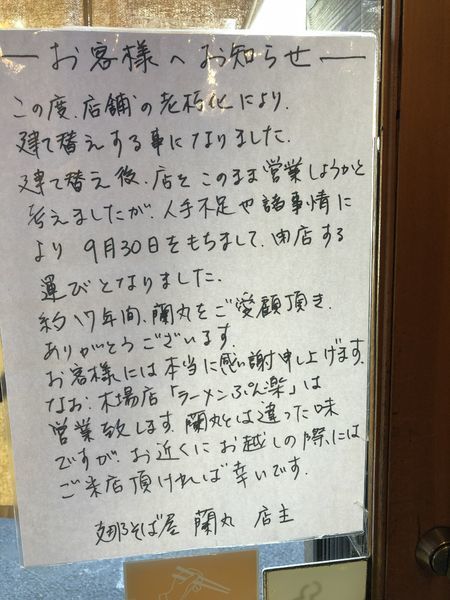 ーお客様へお知らせー
この度、店舗の老朽化により、
建て替えする事になりました。
建て替え後、店をこのまま営業しようかと
考えましたが、人手不足や諸事情に
より 9月30日をもちまして、閉店する
運びとなりました。
約17年間、蘭丸をご愛顧頂き、
ありがとうございます。
お客様には本当に感謝申し上げます。
なお、木場店「ラーメンぷん楽」は
営業致します。蘭丸とは違った味
ですが、お近くにお越しの際には
ご来店頂ければ幸いです。
支那そば屋 蘭丸 店主